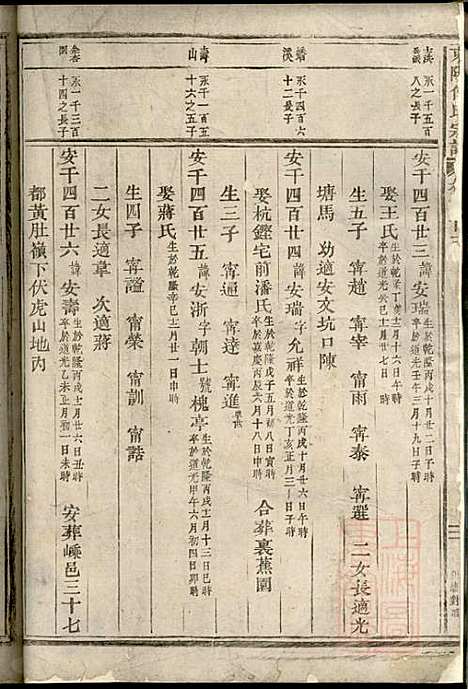 東陽何氏宗譜
永一千五百
八之長子
安千四百廿三諱安瑞生於乾隆丙戌十月廿二日子時卒於道光壬午三月十九日子時
娶王氏生於乾隆丁亥十月十六日午時卒於道光癸巳十二月廿七日時
生五子 甯趙 甯宰 甯雨 甯泰 甯選 二女長適光
塘馬 幼適安文坑口陳
永一千四百
十二長子
安千四百廿四諱安瑞字允祥生於乾隆丙戌十一月廿六日午時卒於道光丁亥正月三十一時
娶杭鏗宅前潘氏生於乾隆戊子五月初八日寅時卒於嘉慶丙辰六月十八日申時 合葬裏蕉園
生三子 甯通 甯達 甯進
壽山
永一千四百
十六之五子
安千四百廿五諱安浙字朝士號槐亭生於乾隆丙戌十二月十三日巳時卒於道光甲午六月初四日卯時
娶蔣氏生於乾隆辛巳十二月廿一日申時
生四子 甯證 甯榮 甯訓 甯誥
二女長適韋 次適蔣
永一千三百
十四之長子
安千四百廿六諱安壽生於乾隆丙戌十二月廿六日丑時卒於道光乙未正月初一日未時 安葬嵊邑三十七
都黃肚嶺下伏虎山地內